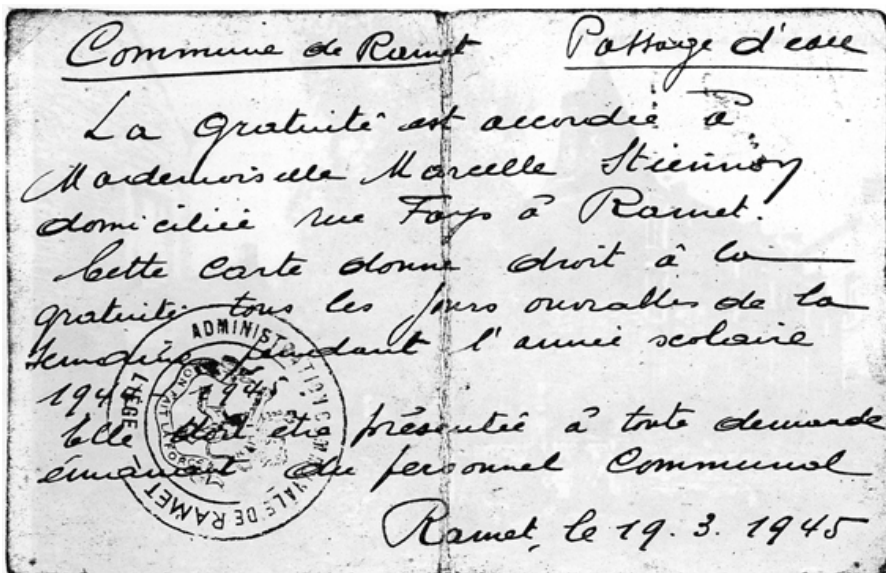 Commune de Ramet Passage d'eau
La gratuité est accordée à
Mademoiselle Marcelle Stiennon
domiciliée rue Fays à Ramet.
Cette carte donne droit à la
gratuité tous les jours ouvrables de la
semaine pendant l'année scolaire
1945
Elle doit être présentée à toute demande
émanant du personnel Communal
Ramet, le 19.3.1945
ADMINISTRATION COMMUNALE DE RAMET
LIEGE